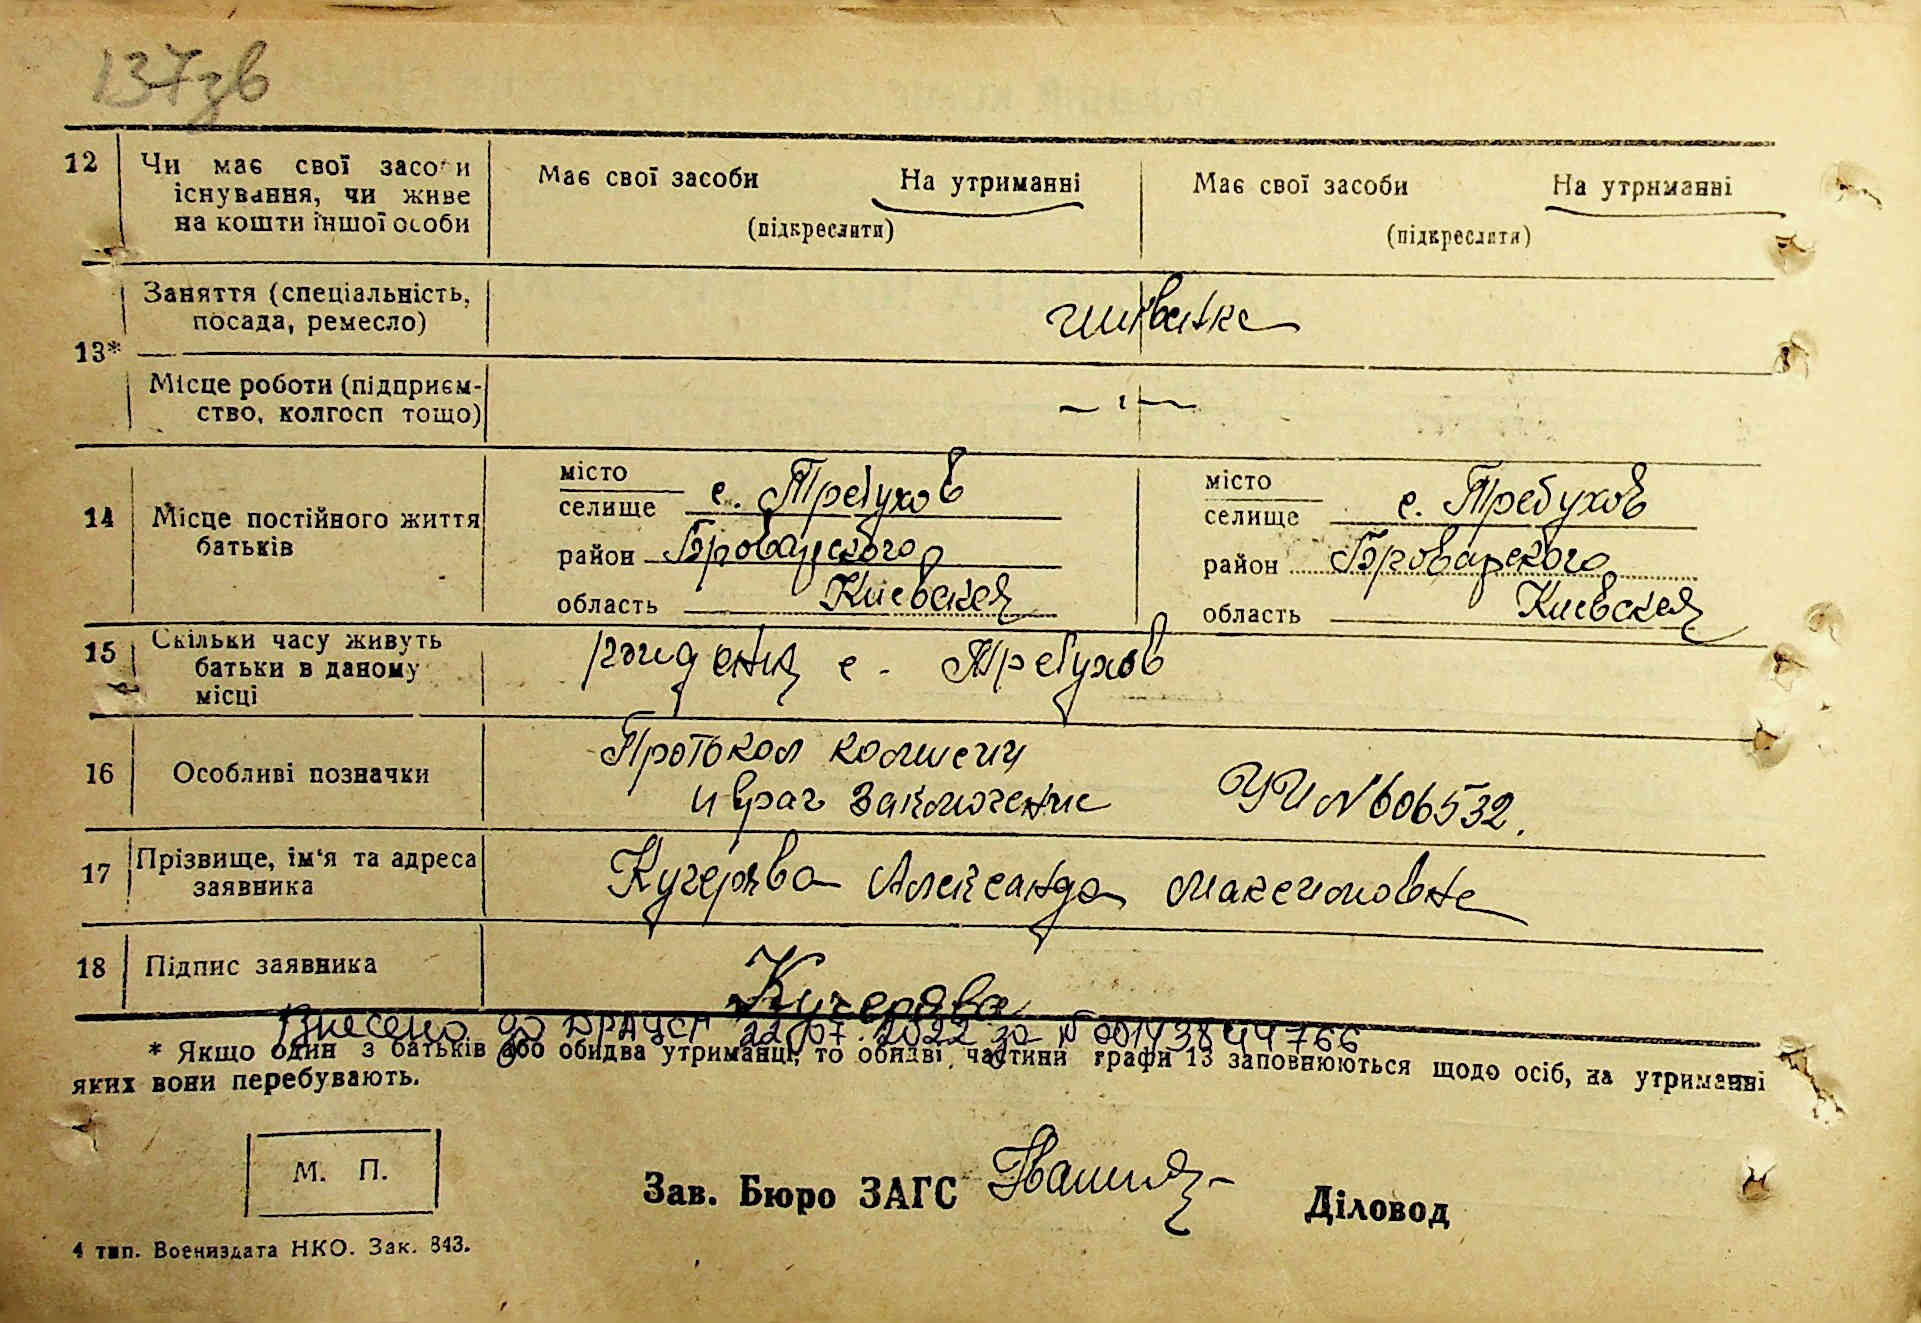 137зв
12 Чи має свої засоби існування, чи живе на кошти іншої особи
Має свої засоби На утриманні
(підкреслити)
Має свої засоби На утриманні
(підкреслити)
13*
Заняття (спеціальність, посада, ремесло)
Місце роботи (підприємство, колгосп тощо)
14 Місце постійного життя батьків
місто
селище с. Требухов
район Броварского
область Киевская
місто
селище с. Требухов
район Броварского
область Киевская
15 Скільки часу живуть батьки в даному місці
с. Требухов
16 Особливі позначки
Протокол комисии
и врач заключение УИ N 606532.
17 Прізвище, ім'я та адреса заявника
Кучерява Александа Максимовне
18 Підпис заявника
Кучерява
Внесено до ДРАЦСГ 22.07.2022 за № 00143844766
* Якщо один з батьків або обидва утриманці, то обидві частини графи 13 заповнюються щодо осіб, на утриманні
яких вони перебувають.
М. П.
Зав. Бюро ЗАГС
Діловод
4 тип. Воениздата НКО. Зак. 843.